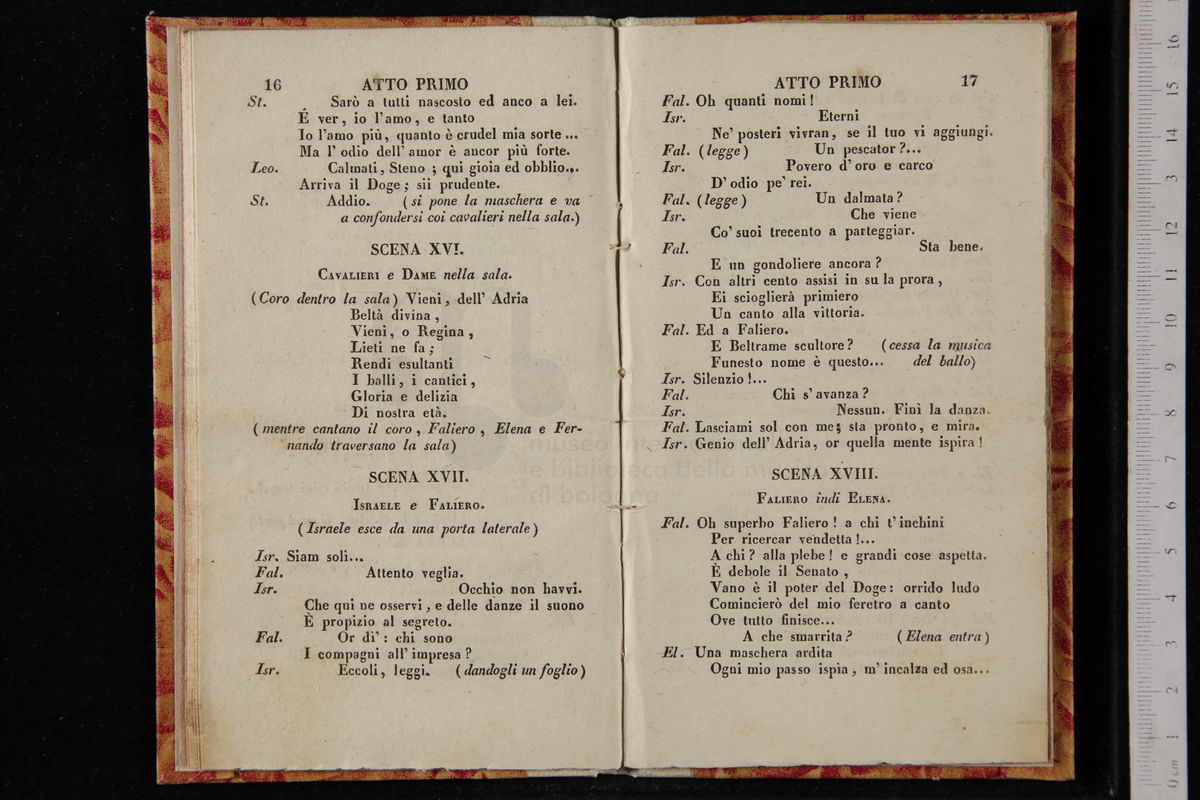 16 ATTO PRIMO
St. Sarò a tutti nascosto ed anco a lei.
È ver, io l'amo, e tanto
Io l'amo più, quanto è crudel mia sorte...
Ma l'odio dell'amor è ancor più forte.
Leo. Calmati, Steno; qui gioia ed obblio...
Arriva il Doge; sii prudente.
St. Addio. (si pone la maschera e va
a confondersi coi cavalieri nella sala.)
SCENA XVI.
CAVALIERI e DAME nella sala.
(Coro dentro la sala) Vieni, dell' Adria
Beltà divina,
Vieni, o Regina,
Lieti ne fa;
Rendi esultanti
I balli, i cantici,
Gloria e delizia
Di nostra età.
(mentre cantano il coro, Faliero, Elena e Fer-
nando traversano la sala)
SCENA XVII.
ISRAELE e FALIERO.
(Israele esce da una porta laterale)
Isr. Siam soli...
Fal. Attento veglia.
Isr. Occhio non havvi.
Che qui ne osservi, e delle danze il suono
È propizio al segreto.
Fal. Or dì': chi sono
I compagni all' impresa?
Isr. Eccoli, leggi. (dandogli un foglio)
ATTO PRIMO 17
Fal. Oh quanti nomi!
Isr. Eterni
Ne' posteri vivran, se il tuo vi aggiungi.
Fal. (legge) Un pescator?...
Isr. Povero d'oro e carco
D' odio pe' rei.
Fal. (legge) Un dalmata?
Isr. Che viene
Co' suoi trecento a parteggiar.
Fal. Sta bene.
E un gondoliere ancora?
Isr. Con altri cento assisi in su la prora,
Ei scioglierà primiero
Un canto alla vittoria.
Fal. Ed a Faliero.
E Beltrame scultore? (cessa la musica
Funesto nome è questo... del ballo)
Isr. Silenzio!...
Fal. Chi s'avanza?
Isr. Nessun. Finì la danza.
Fal. Lasciami sol con me; sta pronto, e mira.
Isr. Genio dell' Adria, or quella mente ispira!
SCENA XVIII.
FALIERO indi ELENA.
Fal. Oh superbo Faliero! a chi t'inchini
Per ricercar vendetta!...
A chi? alla plebe! e grandi cose aspetta.
È debole il Senato,
Vano è il poter del Doge: orrido ludo
Comincierò del mio feretro a canto
Ove tutto finisce...
A che smarrita? (Elena entra)
El. Una maschera ardita
Ogni mio passo ispia, m' incalza ed osa...
museo
e biblioteca della
di bologna
0 cm 1 2 3 4 5 6 7 8 9 10 11 12 13 14 15 16